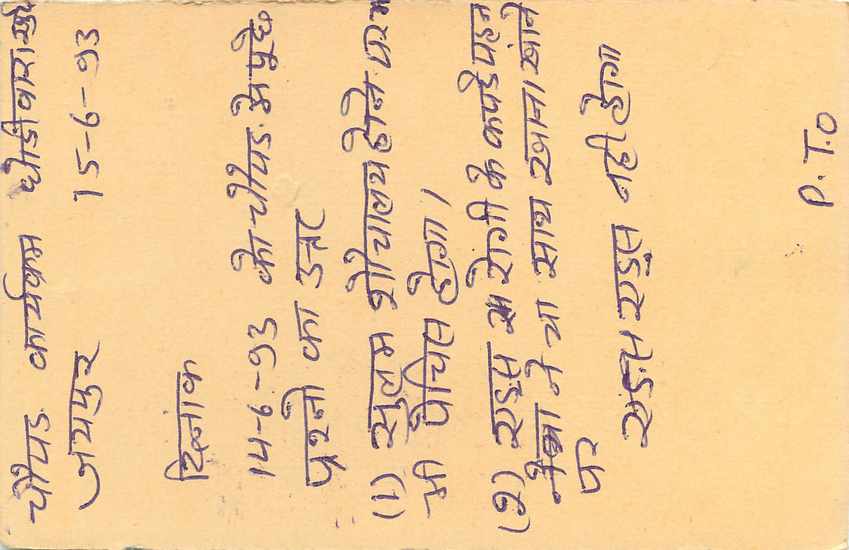 चोपड. कार्यक्रम
जयपुर 15-6-93
दिनाक
14-6-93 को चोपड. मे पूछे
प्रश्नो का उत्तर
(1) सुलभ शोचालय होने पर
होगा।
(2) एड्स रोगी के कपडे पहन
ने या साथ खाना खाने
पर
एड्स नही होगा
P.T.O